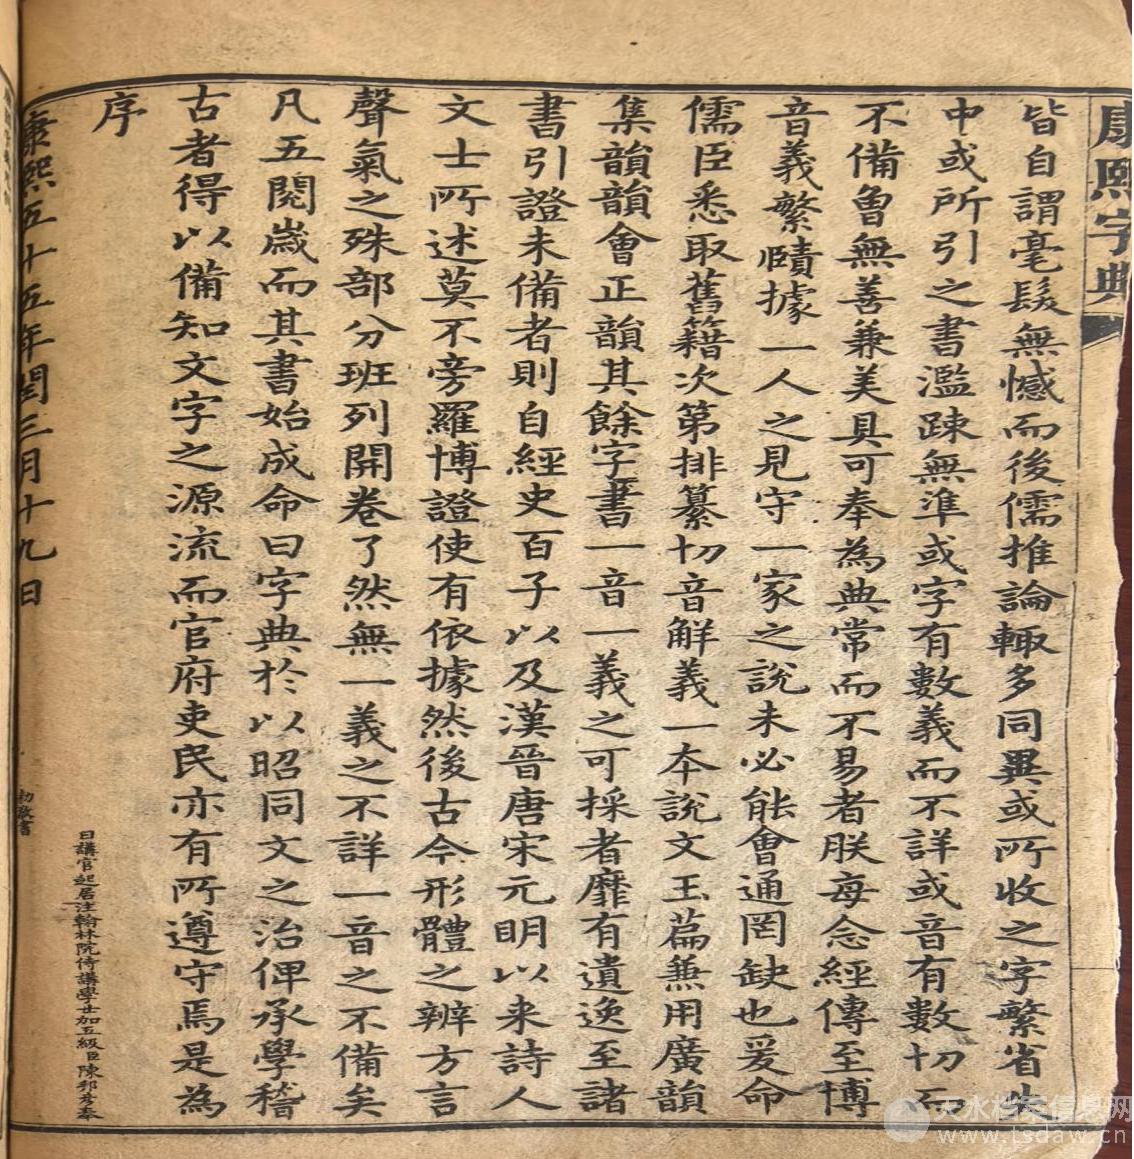 康熙字典
皆自謂毫髮無憾而後儒推論輒多同異或所收之字繁省失
中或所引之書濫疎無準或字有數義而不詳或音有數切而
不備曾無善兼美具可奉為典常而不易者朕每念經傳至博
音義繁賾據一人之見守一家之說未必能會通罔缺也爰命
儒臣悉取舊籍次第排纂切音解義一本說文玉篇兼用廣韻
集韻韻會正韻其餘字書一音一義之可採者靡有遺逸至諸
書引證未備者則自經史百子以及漢晉唐宋元明以來詩人
文士所述莫不旁羅博證使有依據然後古今形體之辨方言
聲氣之殊部分班列開卷了然無一義之不詳一音之不備矣
凡五閱歲而其書始成命曰字典於以昭同文之治俾承學稽
古者得以備知文字之源流而官府吏民亦有所遵守焉是為
序
日講官起居注翰林院侍講學士加五級臣陳邦彥奉
康熙五十五年閏三月十九日
勅敬書
天水档案信息网
www.tsdaw.cn